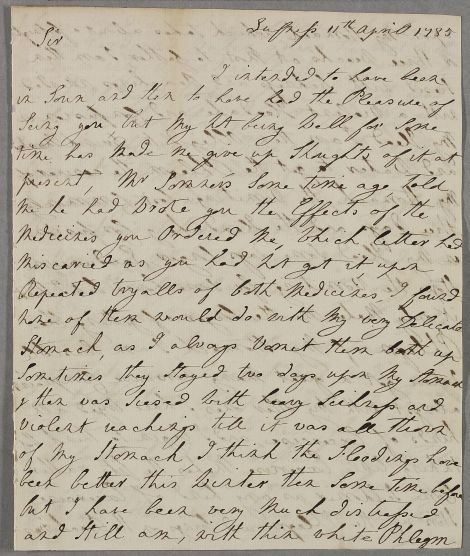 Luffness 11th April 1785
Sir
I intended to have been
in Town and then to have had the Pleasure of
Seing you but My Not being Well for Some
time has Made Me give up Thoughts of it at
present, Mr Somners Some time ago told
Me he had Wrote you the Effects of the
Medicines you Ordered Me, Which letter had
Miscaried as you had Not got it upon
Repeated tryalls of both Medicines, I found
None of them would do with My very Delicate
Stomach, as I always Vomit them both up
Sometimes they Stayed two days upon My Stomach
& then was Seised with heavy Sickness and
violent reachings till it was all thrown
of My Stomach, I think the Floodings have
been better this Winter then Some time before
but I have been very Much distressed
and Still am, with thin white Phlegm